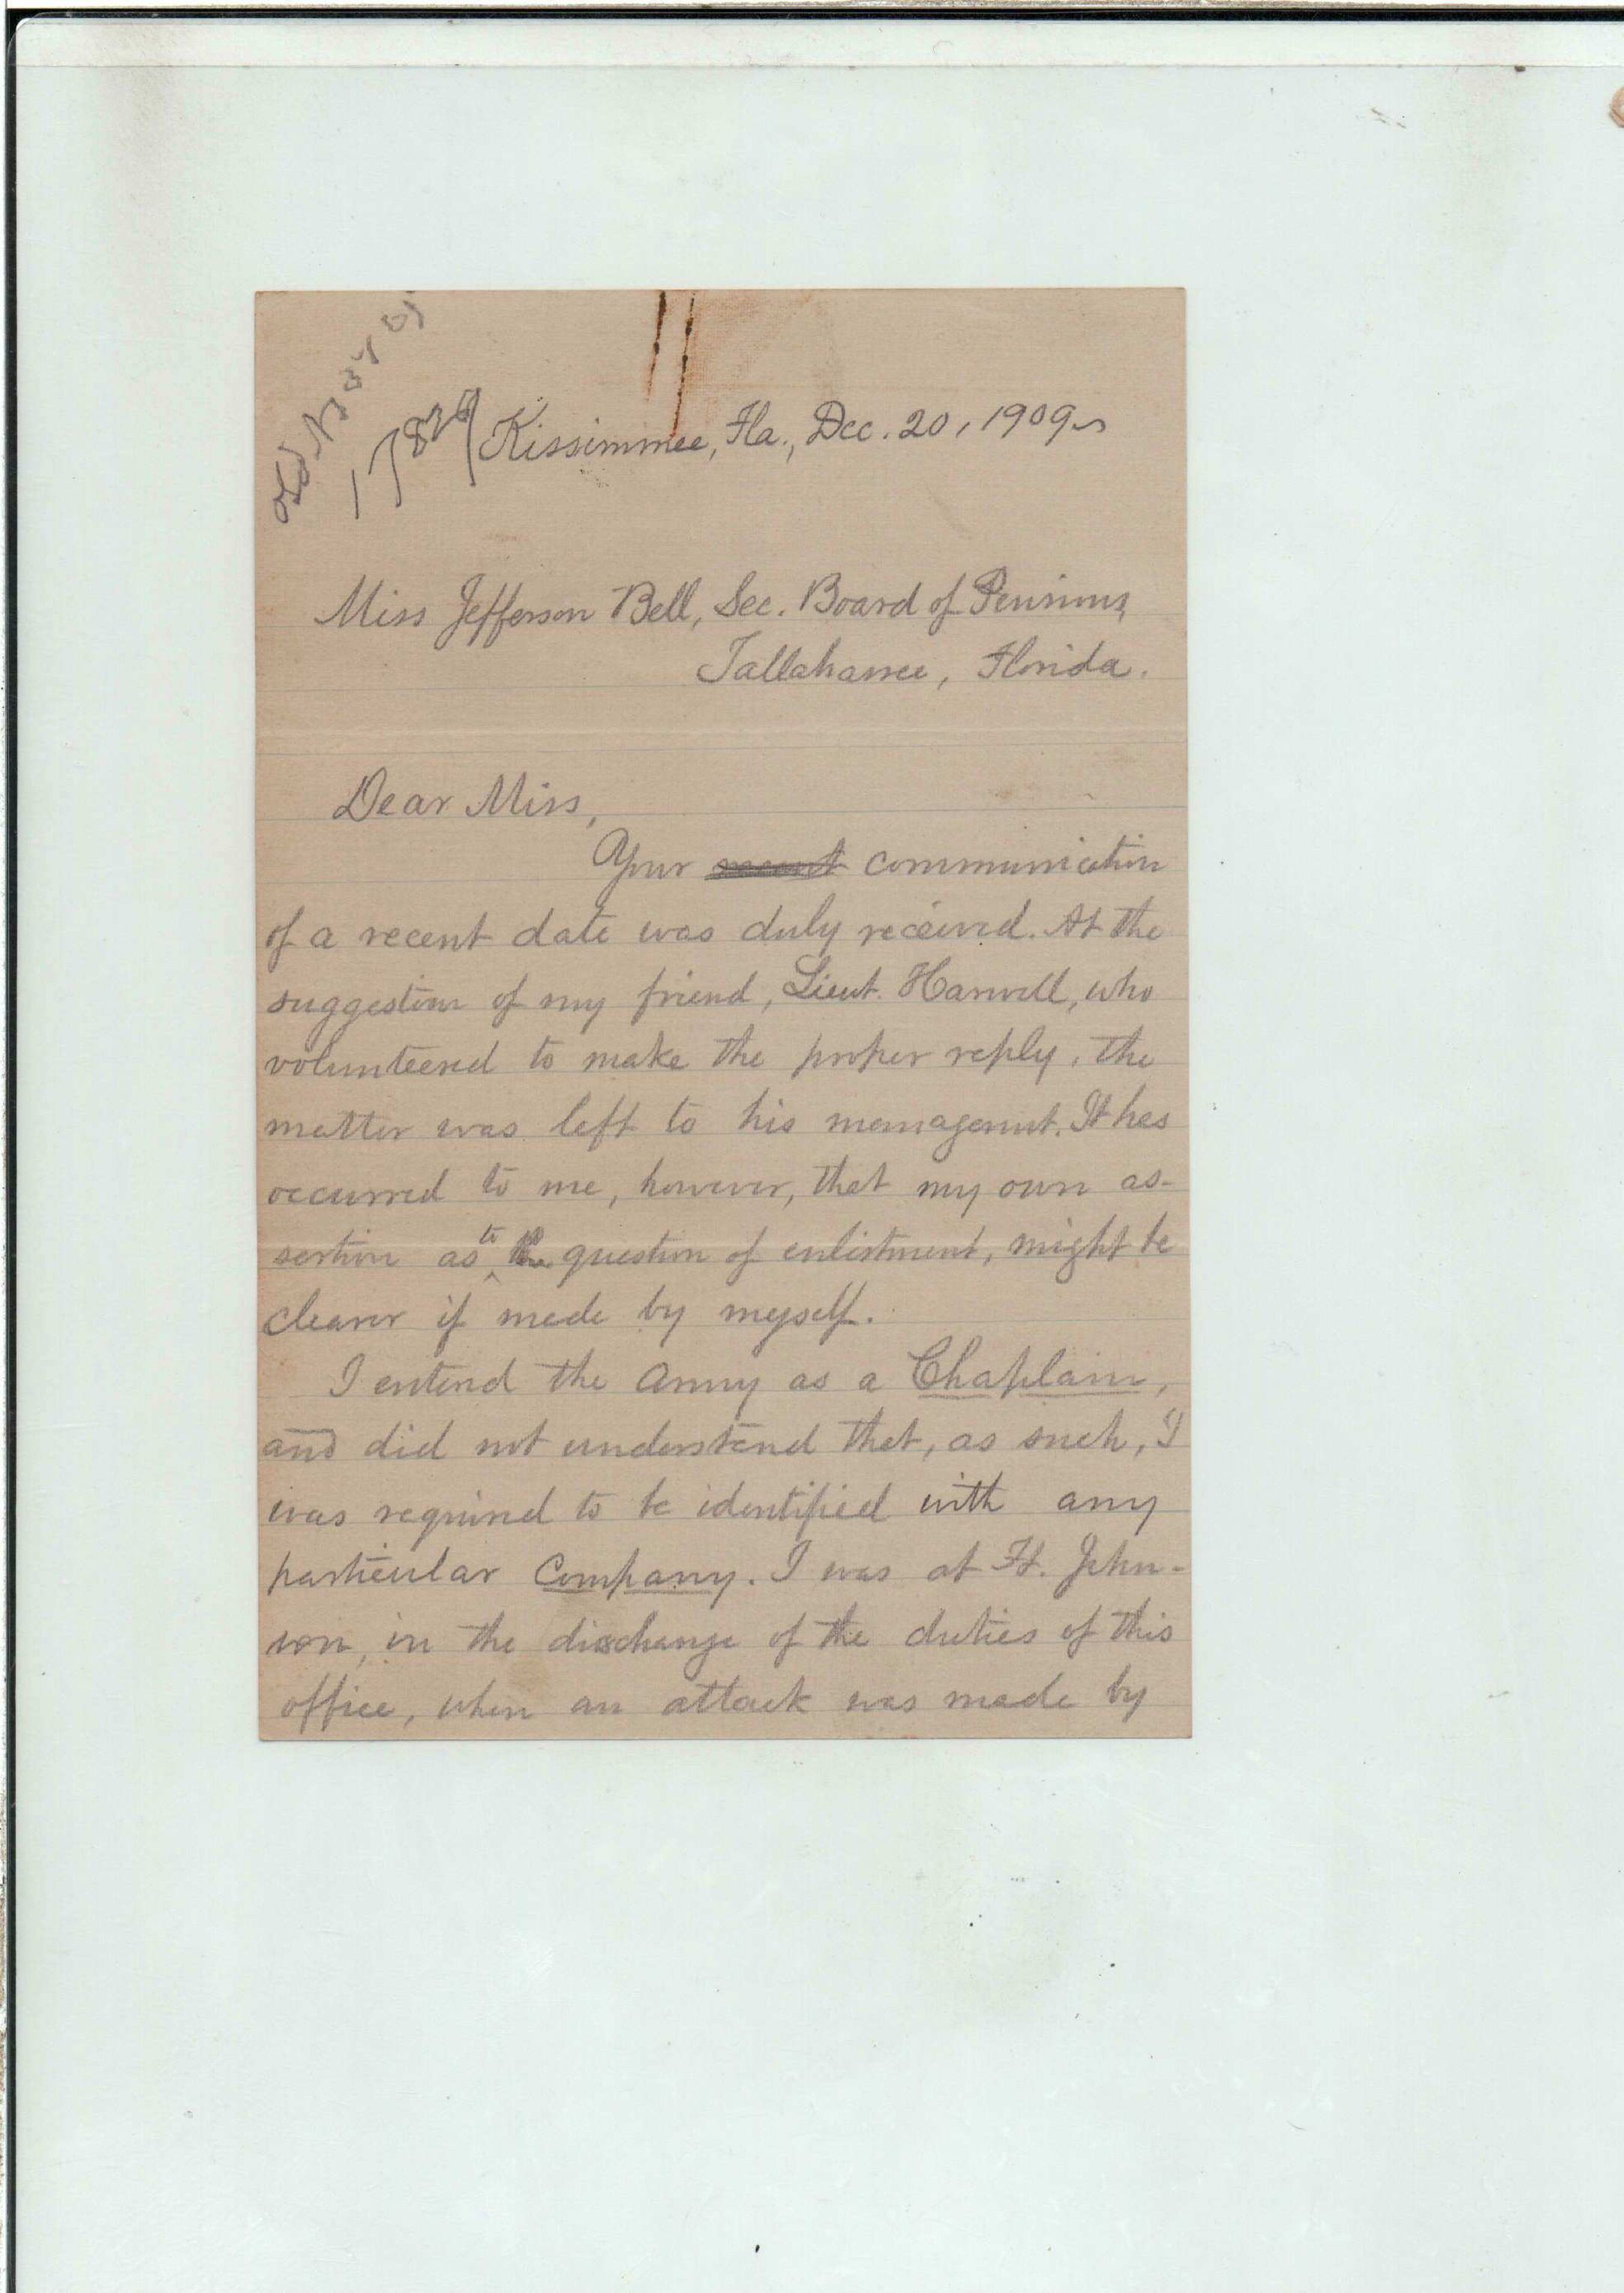 17826
Kissimmee, Fla., Dec. 20, 1909
Miss Jefferson Bell, Sec. Board of Pensions,
Tallahassee, Florida.
Dear Miss,
Your recent communication
of a recent date was duly received. At the
suggestion of my friend, Lieut. Harwell, who
volunteered to make the proper reply, the
matter was left to his management. It has
occurred to me, however, that my own as-
sertion as to the question of enlistment, might be
clearer if made by myself.
I entered the Army as a Chaplain,
and did not understand that, as such, I
was required to be identified with any
particular Company. I was at Ft. John-
son, in the discharge of the duties of this
office, when an attack was made by